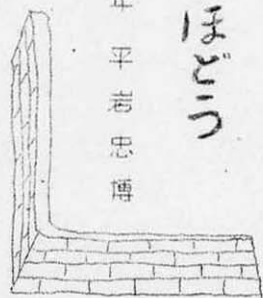 ほどう
年 平岩忠博